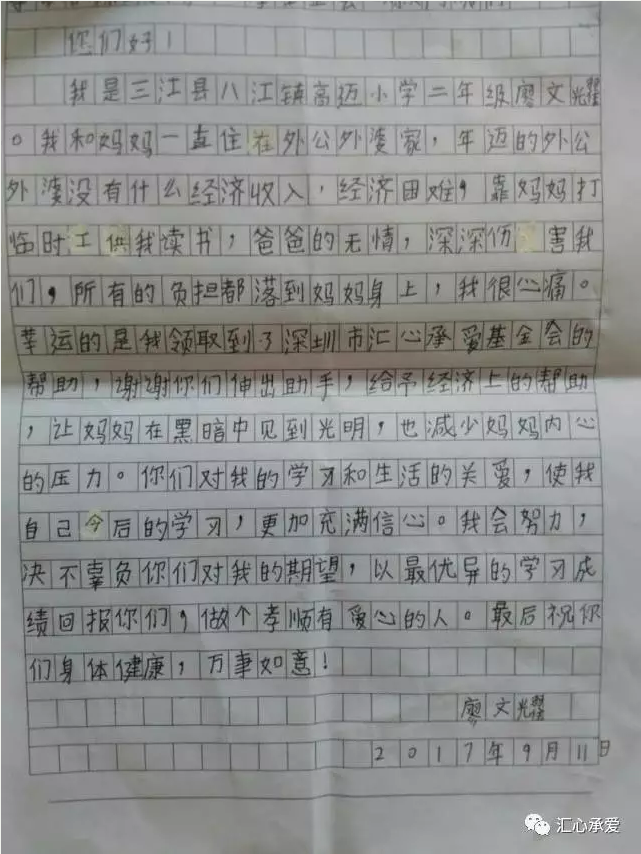 您们好！
我是三江县八江镇高迈小学二年级廖文耀
。我和妈妈一直住在外公外婆家，年迈的外公
外婆没有什么经济收入，经济困难，靠妈妈打
临时工供我读书，爸爸的无情，深深伤害我
们，所有的负担都落到妈妈身上，我很心痛。
幸运的是我领取到了深圳市汇心承爱基金会的
帮助，谢谢你们伸出助手，给予经济上的帮助
，让妈妈在黑暗中见到光明，也减少妈妈内心
的压力。你们对我的学习和生活的关爱，使我
自己今后的学习，更加充满信心。我会努力，
决不辜负你们对我的期望，以最优异的学习成
绩回报你们，做个孝顺有爱心的人。最后祝你
们身体健康，万事如意！
廖文耀
2017年9月11日
汇心承爱